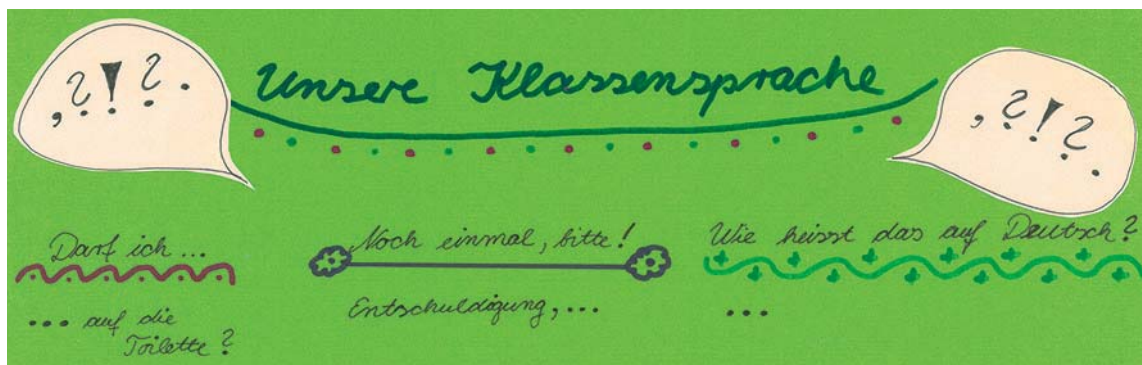 , ? ! ? .
Unsere Klassensprache
, ? ! ? .
Darf ich ...
... auf die
Toilette?
Noch einmal, bitte!
Entschuldigung, ...
Wie heisst das auf Deutsch?
...